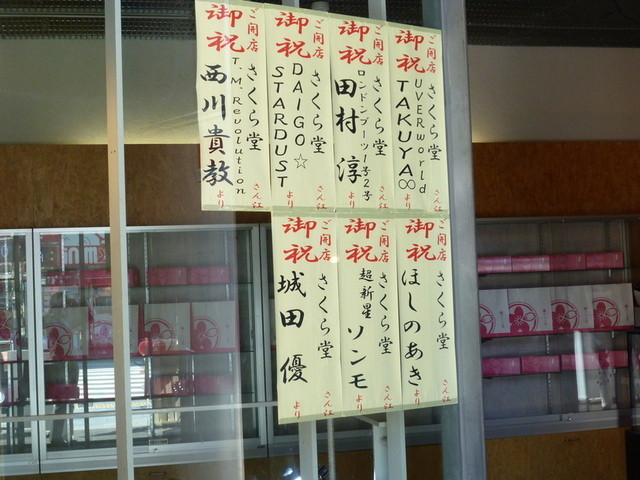 ご開店
御祝
さくら堂 さん江
UVERworld
TAKUYA∞ より
ご開店
御祝
さくら堂 さん江
ロンドンブーツ1号2号
田村 淳 より
ご開店
御祝
さくら堂 さん江
DAIGO☆
STARDUST より
ご開店
御祝
さくら堂 さん江
T.M.Revolution
西川貴教 より
ご開店
御祝
さくら堂 さん江
ほしのあき より
ご開店
御祝
さくら堂 さん江
超新星
ソンモ より
ご開店
御祝
さくら堂 さん江
城田 優 より